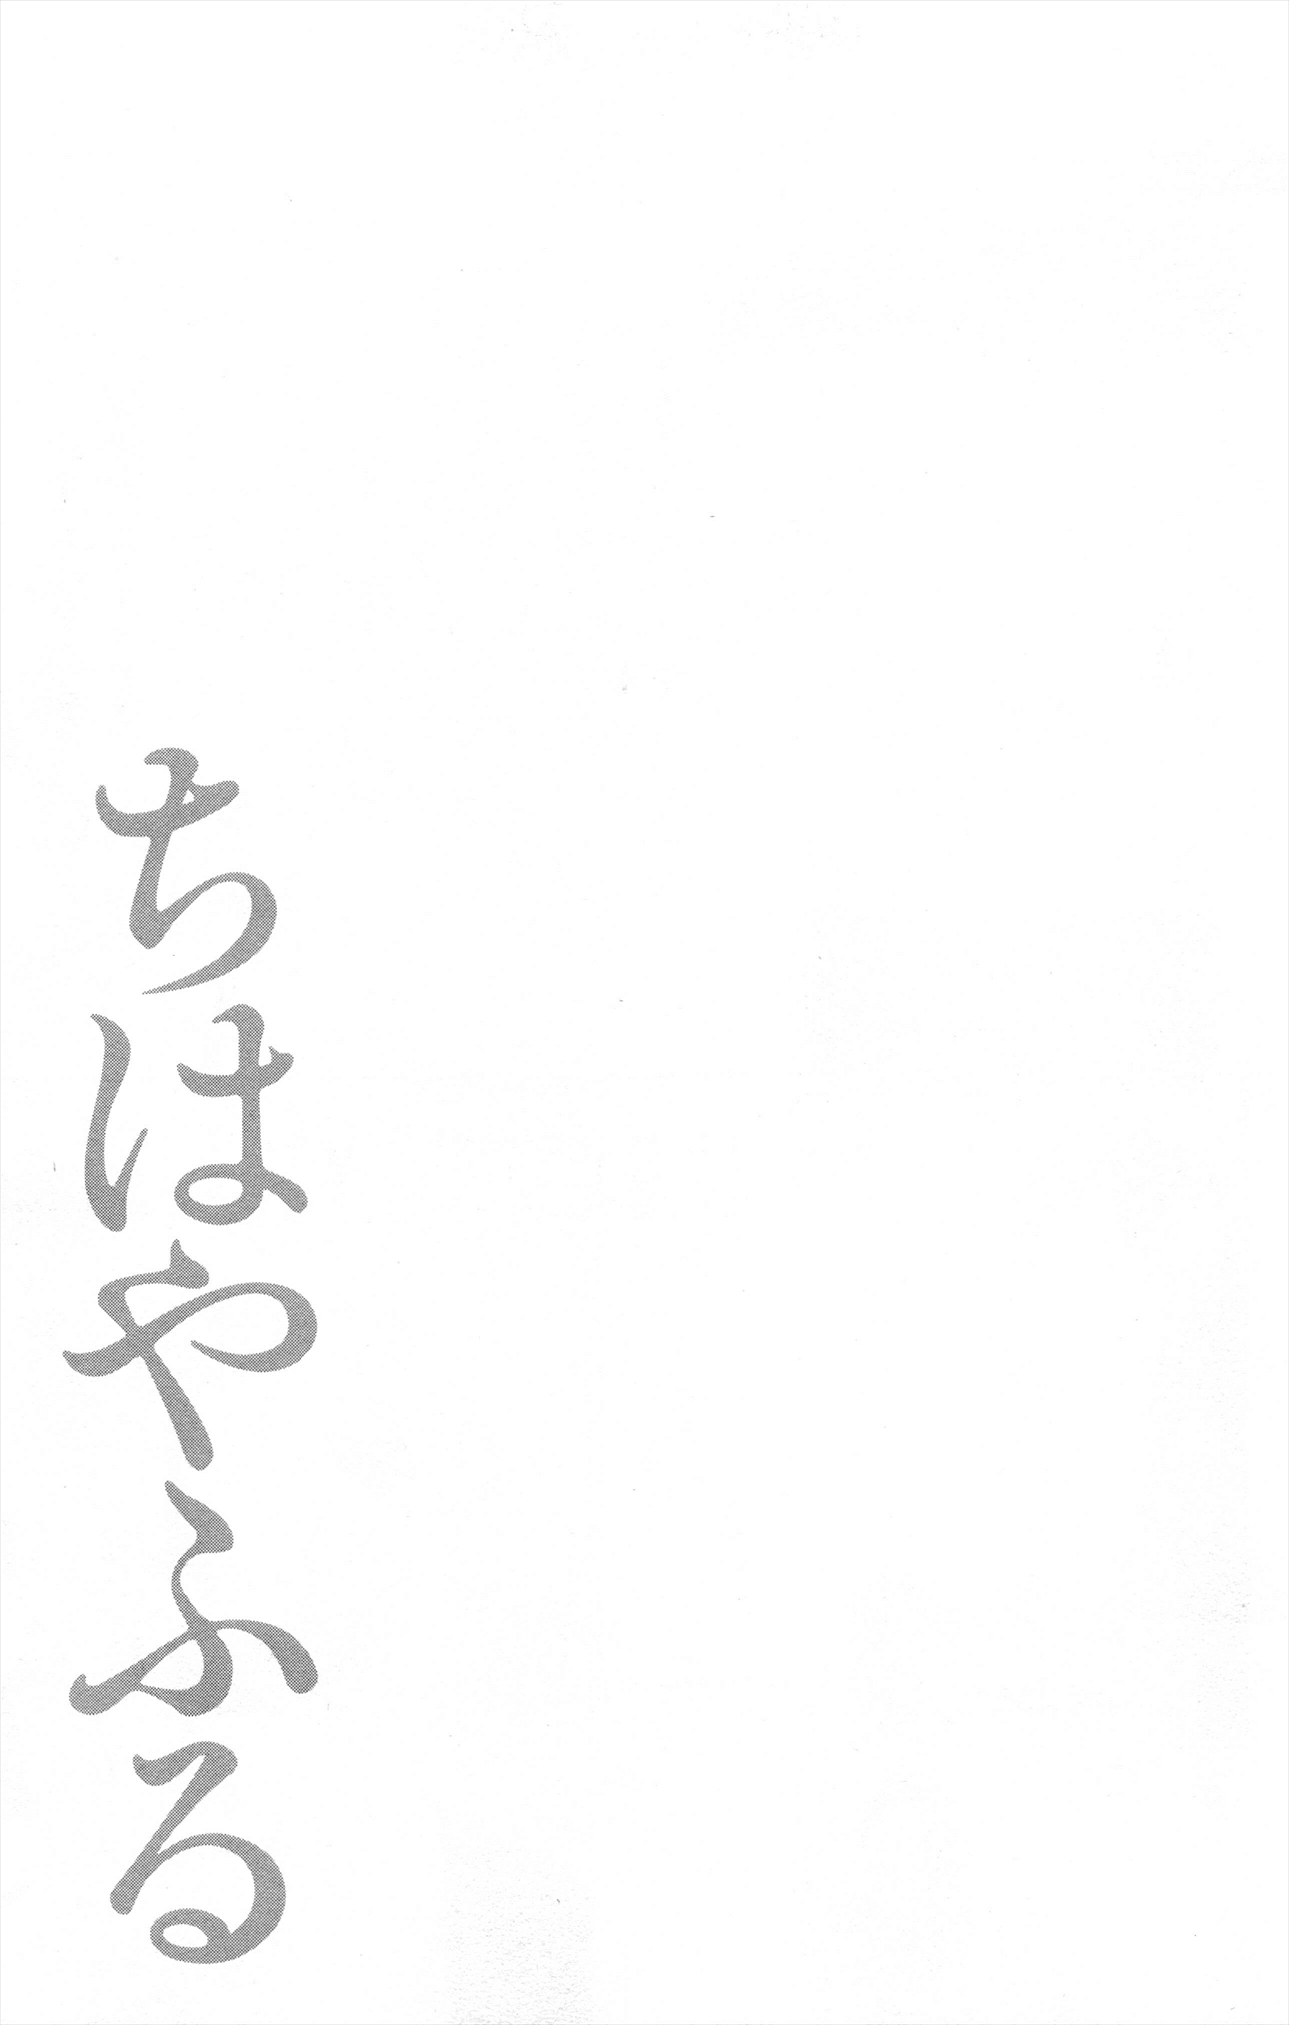 ちはやふる